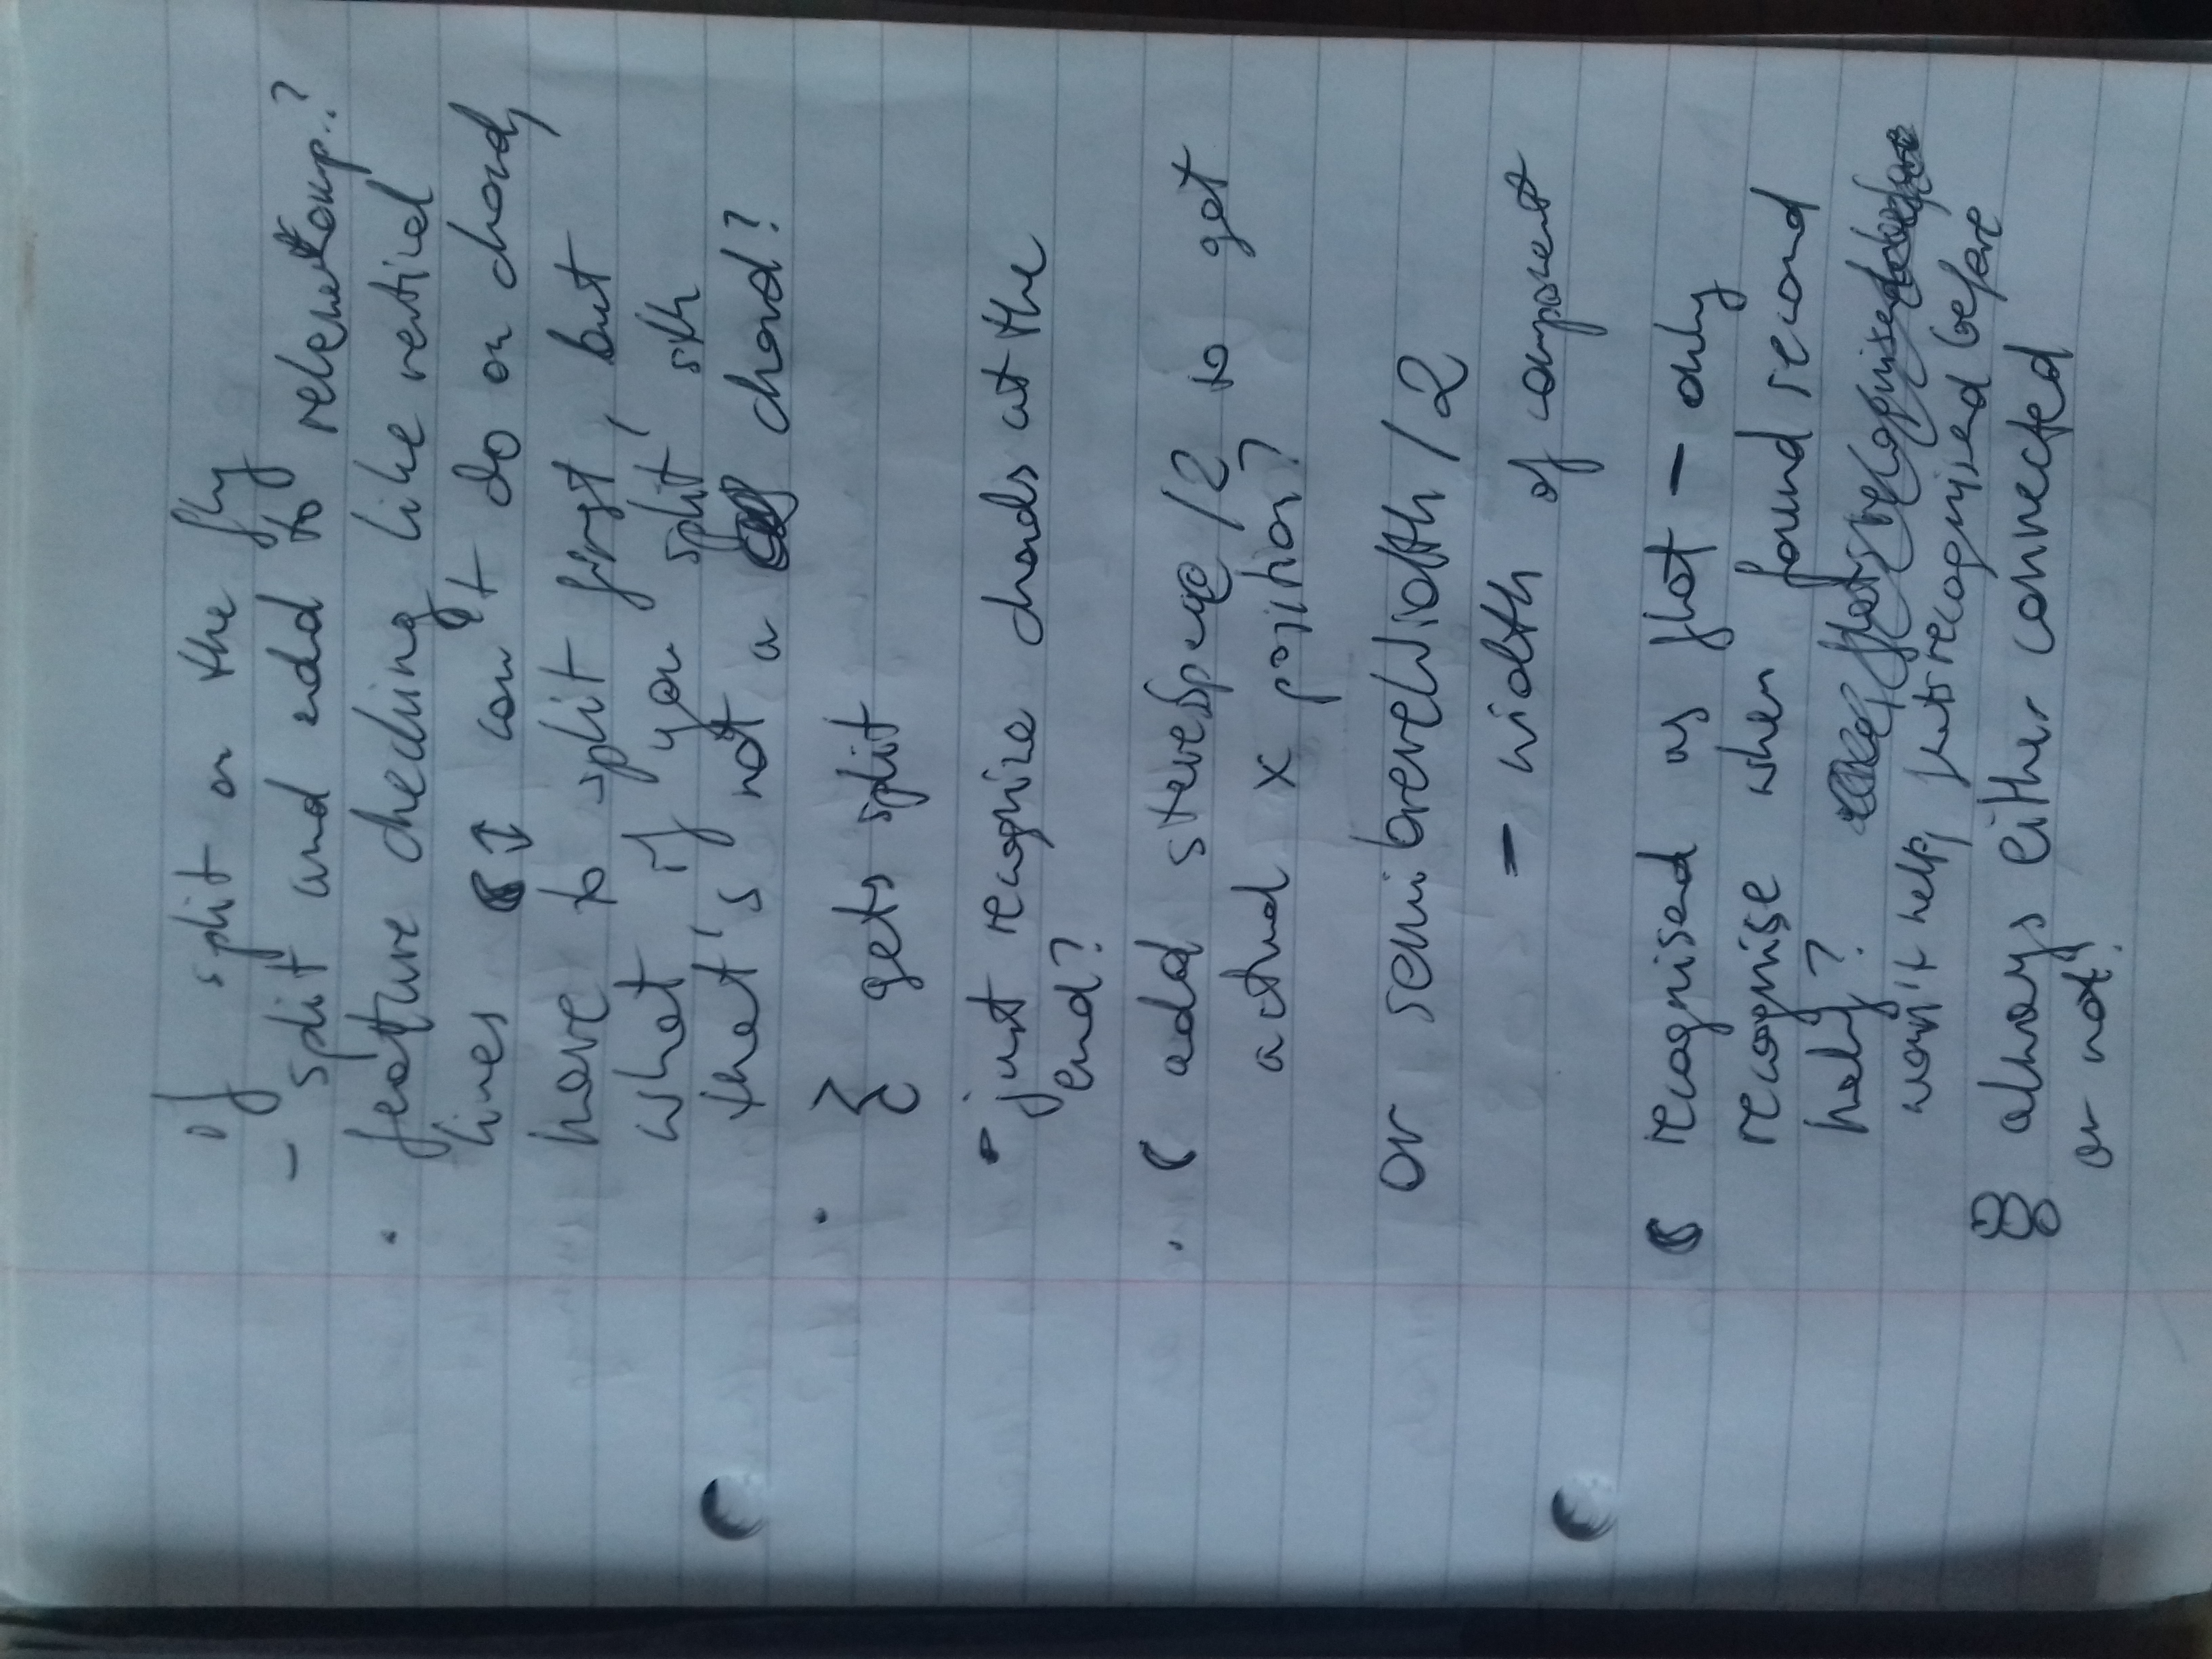 if split on the fly
- split and add to relevantComp.?
· feature checking like vertical
lines ↕ can't do on chord,
have to split first, but
what, if you split sth
that's not a chord?
· gets split
- just recognize chords at the
end?
· add staveSpace/2 to get
actual x position?
or semibreveWidth/2
- width of component
recognised as flat - only
recognise when found second
half?
won't help, flats recognised before
always either connected
or not?